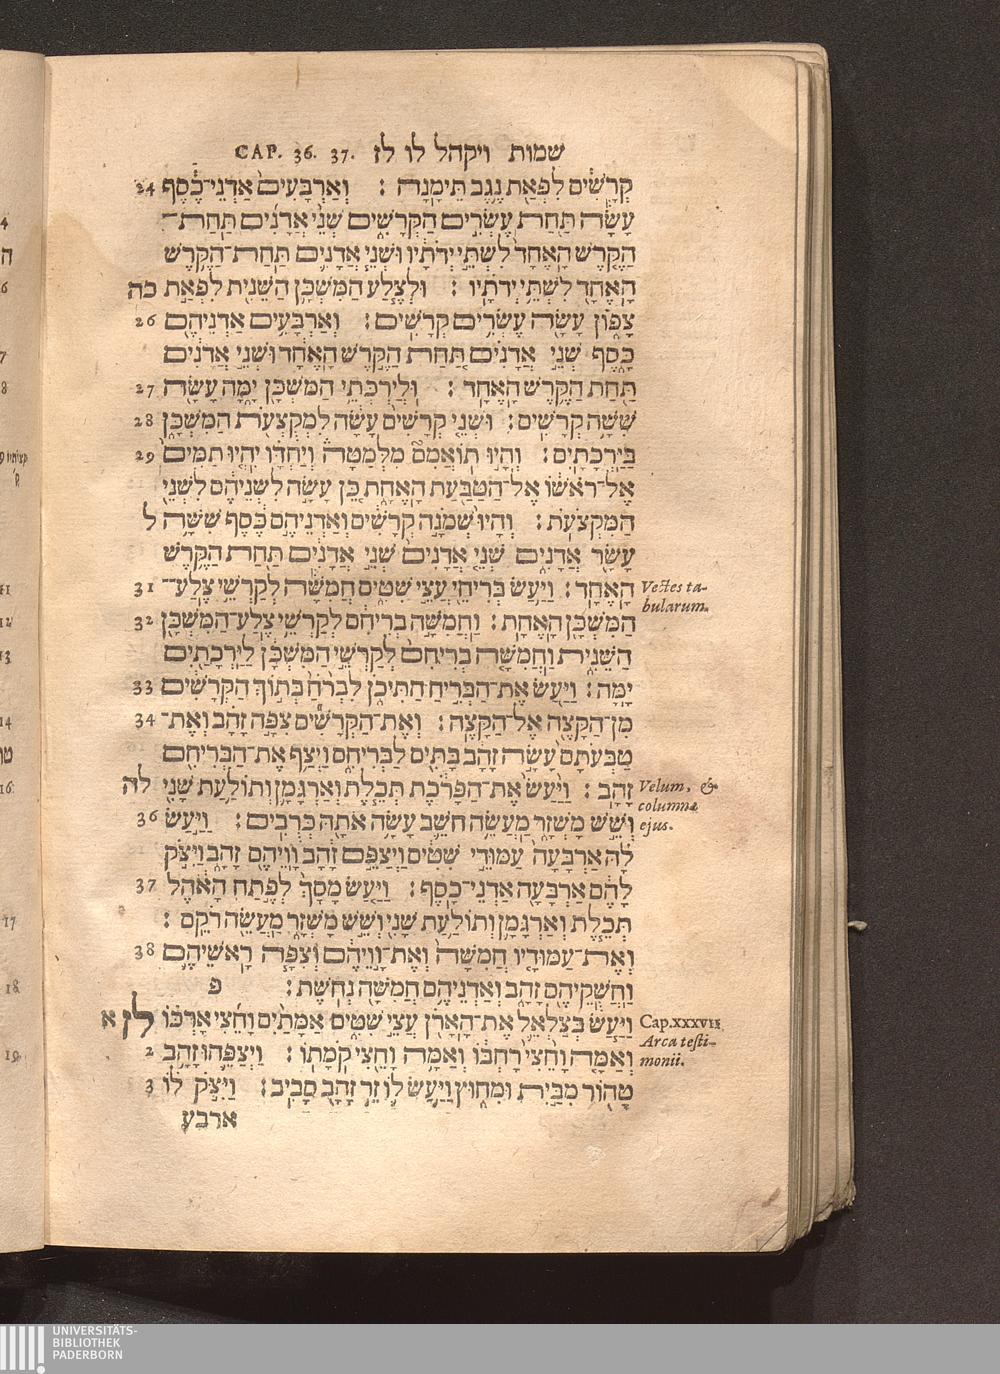 CAP. 36. 37. שמות ויקהל לו לז
קְרָשִׁים לִפְאַת נֶגֶב תֵּימָנָה׃ וְאַרְבָּעִים אַדְנֵי־כֶסֶף 24
עָשָׂה תַּחַת עֶשְׂרִים הַקְּרָשִׁים שְׁנֵי אֲדָנִים תַּחַת־
הַקֶּרֶשׁ הָאֶחָד לִשְׁתֵּי יְדֹתָיו וּשְׁנֵי אֲדָנִים תַּחַת־הַקֶּרֶשׁ
הָאֶחָד לִשְׁתֵּי יְדֹתָיו׃ וּלְצֶלַע הַמִּשְׁכָּן הַשֵּׁנִית לִפְאַת כה
צָפוֹן עָשָׂה עֶשְׂרִים קְרָשִׁים׃ וְאַרְבָּעִים אַדְנֵיהֶם 26
כָּסֶף שְׁנֵי אֲדָנִים תַּחַת הַקֶּרֶשׁ הָאֶחָד וּשְׁנֵי אֲדָנִים
תַּחַת הַקֶּרֶשׁ הָאֶחָד׃ וּלְיַרְכְּתֵי הַמִּשְׁכָּן יָמָּה עָשָׂה 27
שִׁשָּׁה קְרָשִׁים׃ וּשְׁנֵי קְרָשִׁים עָשָׂה לִמְקֻצְעֹת הַמִּשְׁכָּן 28
בַּיַּרְכָתָיִם׃ וְהָיוּ תוֹאֲמִם מִלְּמַטָּה וְיַחְדָּו יִהְיוּ תַמִּים 29
אֶל־רֹאשׁוֹ אֶל־הַטַּבַּעַת הָאֶחָת כֵּן עָשָׂה לִשְׁנֵיהֶם לִשְׁנֵי
הַמִּקְצֹעֹת׃ וְהָיוּ שְׁמֹנָה קְרָשִׁים וְאַדְנֵיהֶם כֶּסֶף שִׁשָּׁה ל
עָשָׂר אֲדָנִים שְׁנֵי אֲדָנִים שְׁנֵי אֲדָנִים תַּחַת הַקֶּרֶשׁ
הָאֶחָד׃ וַיַּעַשׂ בְּרִיחֵי עֲצֵי שִׁטִּים חֲמִשָּׁה לְקַרְשֵׁי צֶלַע־ 31
Vectes tabularum.
הַמִּשְׁכָּן הָאֶחָת׃ וַחֲמִשָּׁה בְרִיחִם לְקַרְשֵׁי צֶלַע־הַמִּשְׁכָּן 32
הַשֵּׁנִית וַחֲמִשָּׁה בְרִיחִם לְקַרְשֵׁי הַמִּשְׁכָּן לַיַּרְכָתַיִם
יָמָּה׃ וַיַּעַשׂ אֶת־הַבְּרִיחַ הַתִּיכֹן לִבְרֹחַ בְּתוֹךְ הַקְּרָשִׁים 33
מִן הַקָּצֶה אֶל־הַקָּצֶה׃ וְאֶת־הַקְּרָשִׁים צִפָּה זָהָב וְאֶת־ 34
טַבְּעֹתָם עָשָׂה זָהָב בָּתִּים לַבְּרִיחִם וַיְצַף אֶת־הַבְּרִיחִם
זָהָב׃ וַיַּעַשׂ אֶת־הַפָּרֹכֶת תְּכֵלֶת וְאַרְגָּמָן וְתוֹלַעַת שָׁנִי לה
Velum, &
columnæ
ejus.
וְשֵׁשׁ מָשְׁזָר מַעֲשֵׂה חֹשֵׁב עָשָׂה אֹתָהּ כְּרֻבִים׃ וַיַּעַשׂ 36
לָהּ אַרְבָּעָה עַמּוּדֵי שִׁטִּים וַיְצַפֵּם זָהָב וָוֵיהֶם זָהָב וַיִּצֹק
לָהֶם אַרְבָּעָה אַדְנֵי־כָסֶף׃ וַיַּעַשׂ מָסָךְ לְפֶתַח הָאֹהֶל 37
תְּכֵלֶת וְאַרְגָּמָן וְתוֹלַעַת שָׁנִי וְשֵׁשׁ מָשְׁזָר מַעֲשֵׂה רֹקֵם׃
וְאֶת־עַמּוּדָיו חֲמִשָּׁה וְאֶת־וָוֵיהֶם וְצִפָּה רָאשֵׁיהֶם 38
וַחֲשֻׁקֵיהֶם זָהָב וְאַדְנֵיהֶם חֲמִשָּׁה נְחֹשֶׁת׃ פ
וַיַּעַשׂ בְּצַלְאֵל אֶת־הָאָרֹן עֲצֵי שִׁטִּים אַמָּתַיִם וָחֵצִי אָרְכּוֹ לז א
Cap.XXXVII.
Arca testi-
monii.
וְאַמָּה וָחֵצִי רָחְבּוֹ וְאַמָּה וָחֵצִי קֹמָתוֹ׃ וַיְצַפֵּהוּ זָהָב 2
טָהוֹר מִבַּיִת וּמִחוּץ וַיַּעַשׂ לוֹ זֵר זָהָב סָבִיב׃ וַיִּצֹק לוֹ 3
ארבע
UNIVERSITÄTS-
BIBLIOTHEK
PADERBORN